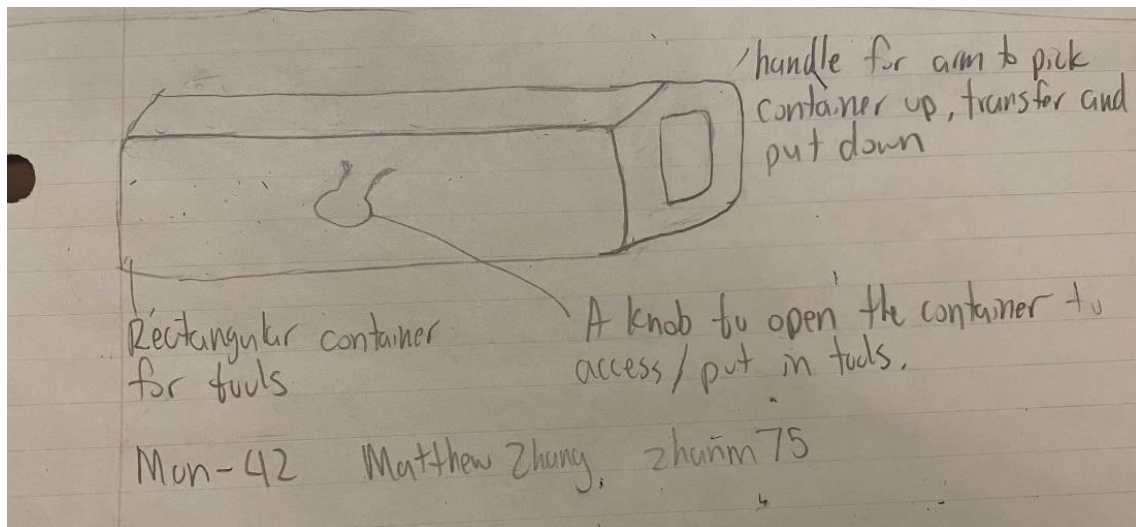 handle for arm to pick
container up, transfer and
put down
Rectangular container
for tools
A knob to open the container to
access/put in tools.
Mon-42 Matthew Zhang, zhanm75